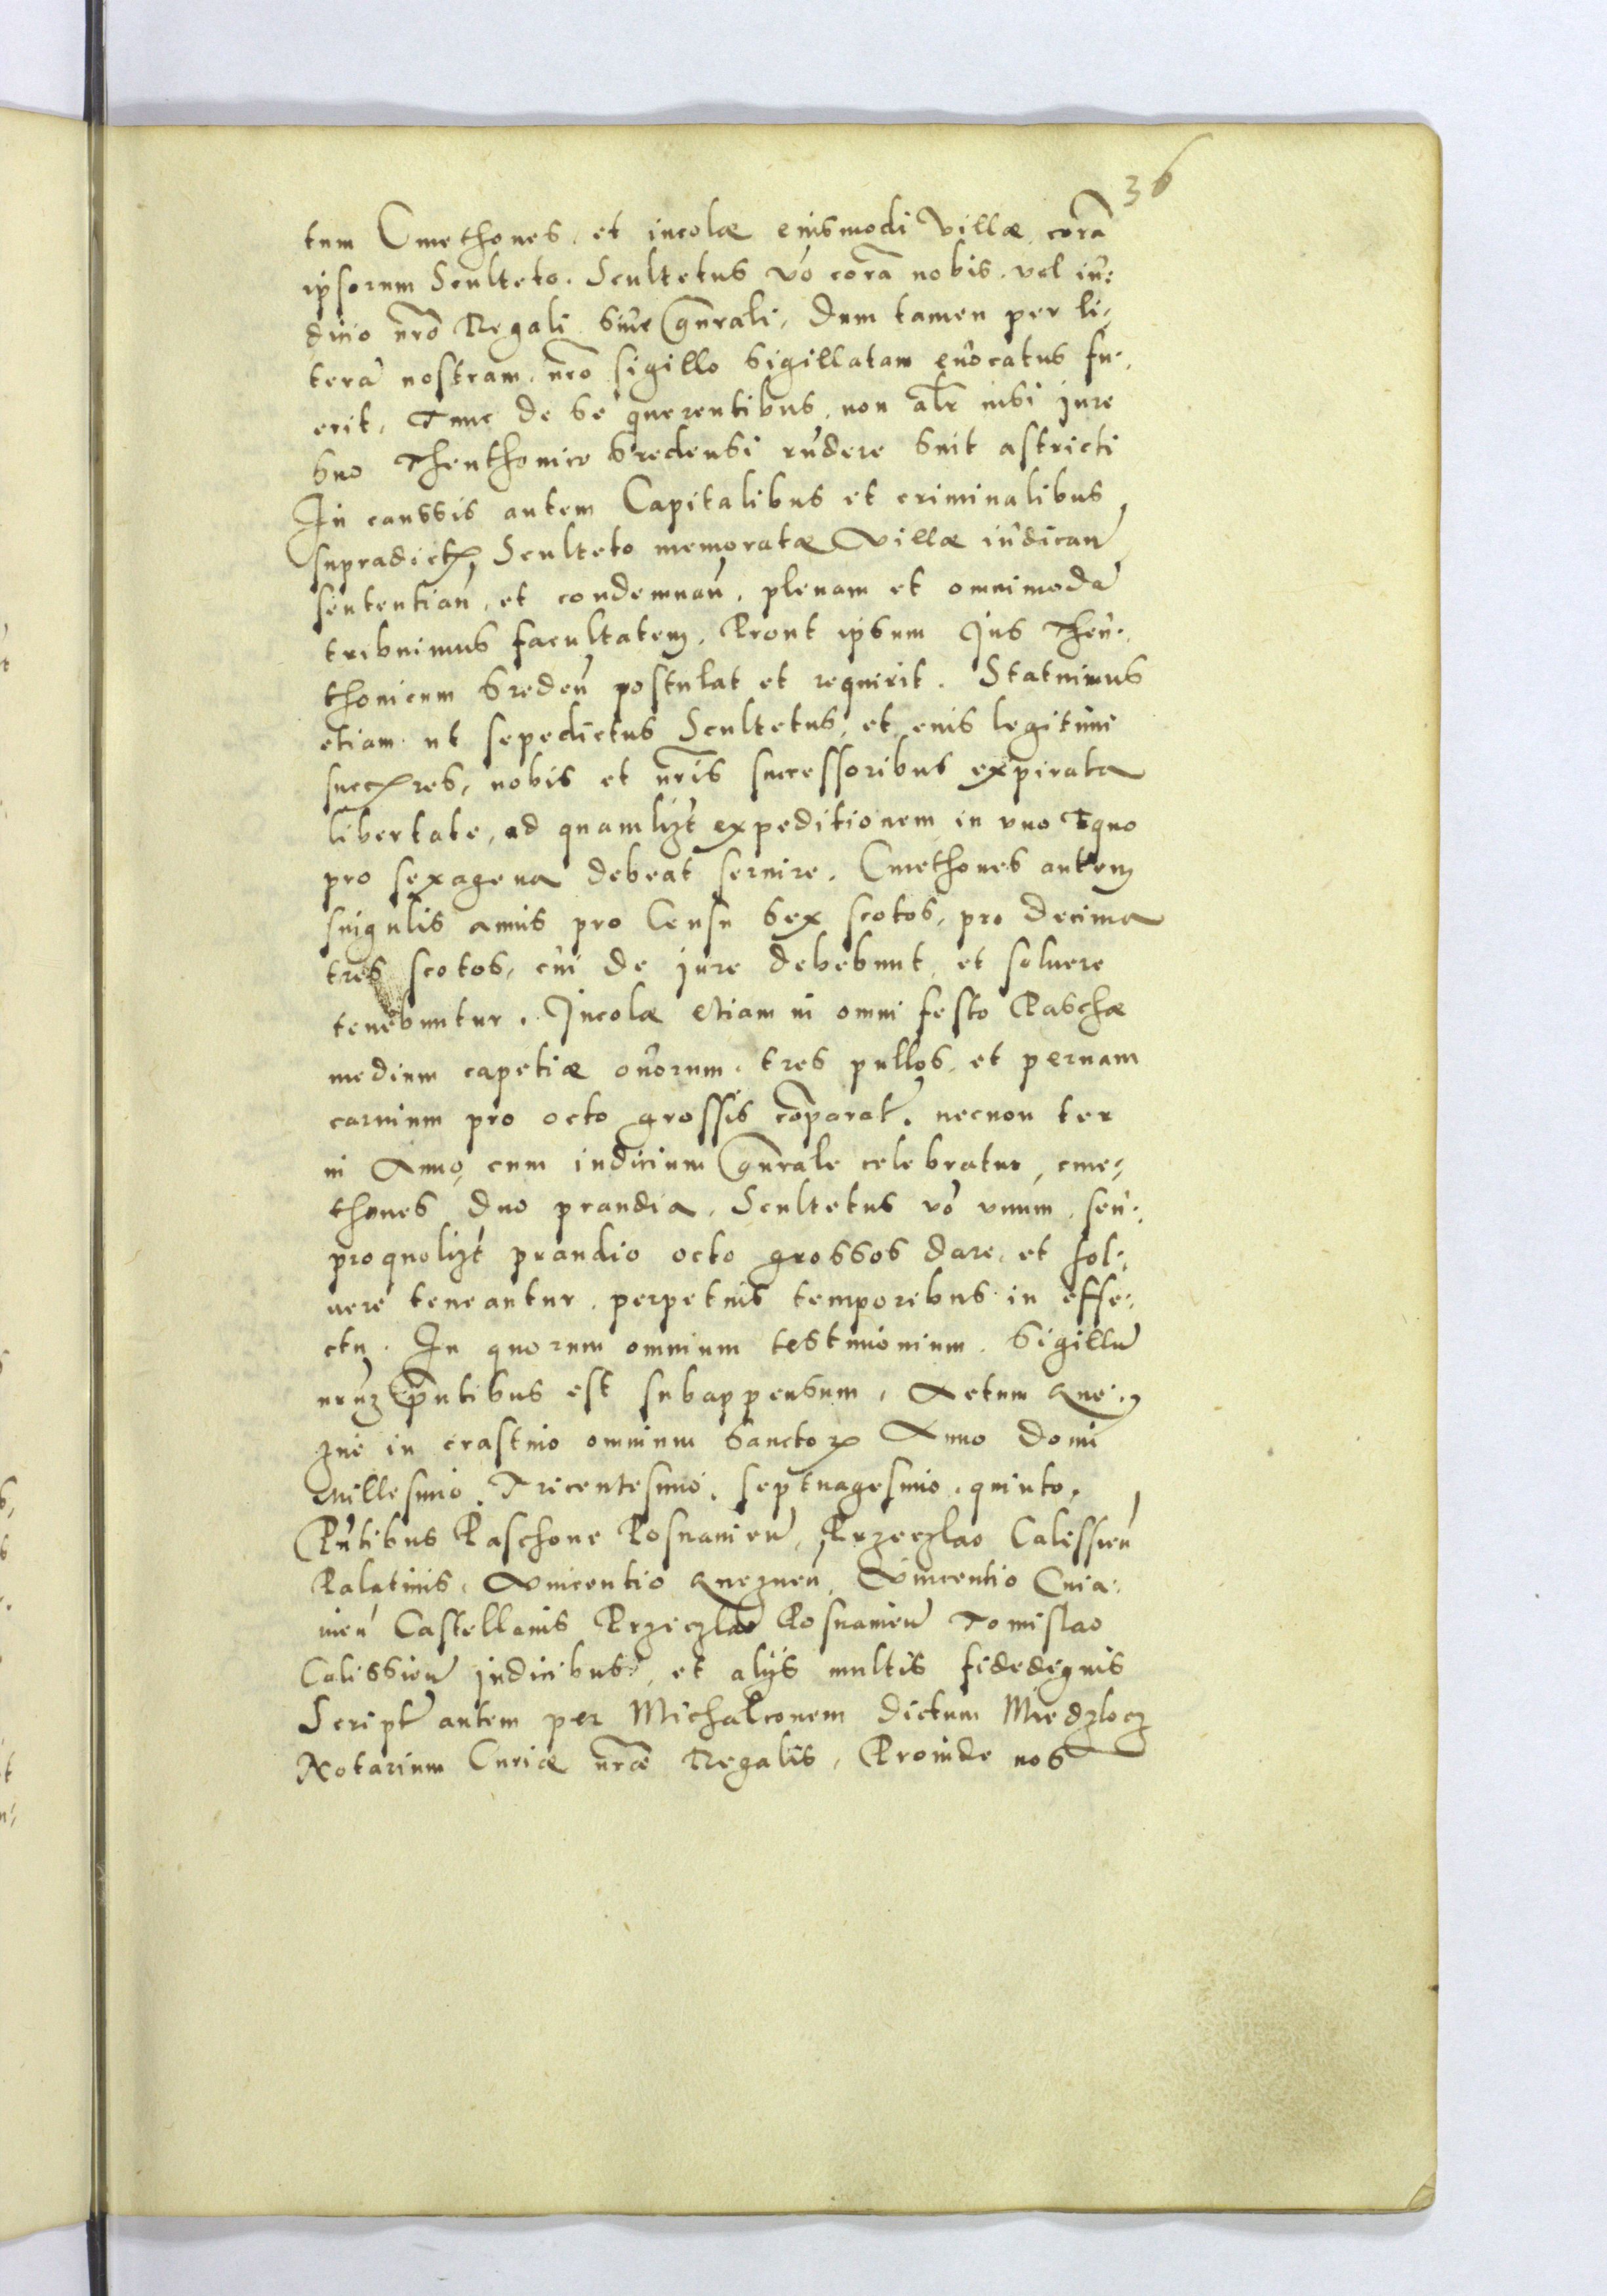 36
tum Cmethones, et incolæ eiusmodi Villæ, corã
ipsorum Sculteto. Scultetus vo corã nobis vel iu:
dicio nro Regali siue Gnrali, dum tamen per li:
terã nostram, nro sigillo sigillatam euocatus fu:
erit, Tunc de se querentibus, non alr nisi jure
suo Theuthonico Sredensi rñdere sint astricti
In caussis autem Capitalibus et criminalibus
supradicto, Sculteto memoratæ Villæ iudicanđ
sententianđ, et condemnanđ, plenam et omnimodã
tribuimus facultatem, Prout ipsum Jus Theu:
thonicum Sreden postulat et requirit. Statuimus
etiam ut sepedictus Scultetus, et eius legitimi
succores, nobis et nris successoribus expirata
libertate, ad quamlizt expeditionem in vno Equo
pro sexagena debeat seruire. Cmethones autem
singulis annis pro Censu sex scotos, pro decima
tres scotos, cui de jure debebunt, et soluere
tenebuntur. Incolæ etiam in omni festo Paschæ
medium capetiæ ouorum, tres pullos, et pernam
carnium pro octo grossis comparat. necnon ter
in Anno, cum iudicium Gnrale celebratur, cme:
thones duo prandia, Scultetus vo vnum, seu:
proquolizt prandio octo grossos dare, et sol:
uere teneantur, perpetuis temporibus in effe:
ctu. In quorum omnium testimonium, Sigillũ
nrum pñtibus est subappensum, Actum Gne:
zne in crastino omnium Sanctor Anno Domi
Millesimo, Tricentesimo, Septuagesimo, quinto,
Pñtibus Paschone Posnanien, Przeczlao Calissien
Palatinis, Vincentio Gneznen, Vincentio Cuia:
uien Castellanis Przeczlao Posnanien Tomislao
Calissien judicibus, et alijs multis fidedignis
Script autem per Michalconem dictum Miedzlocz
Notarium Curiæ nræ Regalis, Proinde nos